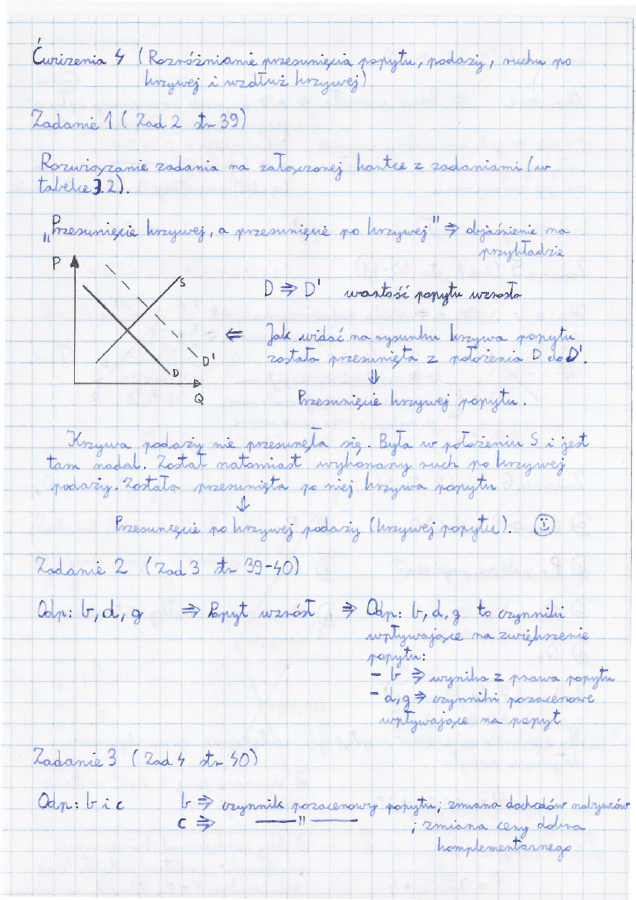 Ćwiczenia 4 (Rozróżnianie przesunięcia popytu, podaży, ruchu po
krzywej i wzdłuż krzywej)
Zadanie 1 (Zad 2 str 39)
Rozwiązanie zadania na załączonej kartce z zadaniami (w
tabelce 3.2).
„Przesunięcie krzywej, a przesunięcie po krzywej" ⇒ objaśnienie na
przykładzie
P
S
D ⇒ D' wartość popytu wzrosła
⇐ Jak widać na rysunku krzywa popytu
została przesunięta z położenia D do D'.
D'
D
Q
⇓
Przesunięcie krzywej popytu.
Krzywa podaży nie przesunęła się. Była w położeniu S i jest
tam nadal. Został natomiast wykonany ruch po krzywej
podaży. Została przesunięta po niej krzywa popytu
⇓
Przesunięcie po krzywej podaży (krzywej popytu). ☺
Zadanie 2 (Zad 3 str 39-40)
Odp: b, d, g ⇒ Popyt wzrósł ⇒ Odp: b, d, g to czynniki
wpływające na zwiększenie
popytu:
- b ⇒ wynika z prawa popytu
- d, g ⇒ czynniki pozacenowe
wpływające na popyt
Zadanie 3 (Zad 4 str 40)
Odp: b i c b ⇒ czynnik pozacenowy popytu; zmiana dochodów nabywców
c ⇒ —— " —— ; zmiana ceny dobra
komplementarnego